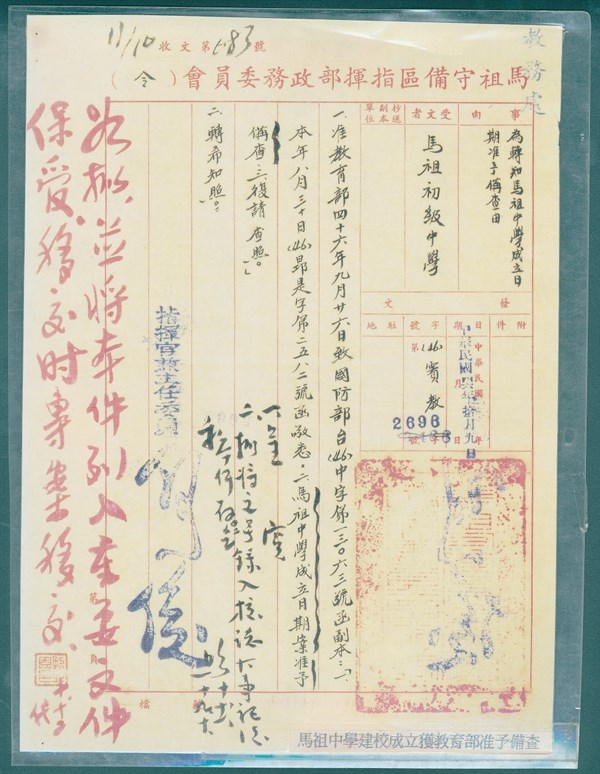 11/10 收文第 683 號
教務處
馬祖守備區指揮部政務委員會（令）
事由
為轉知馬祖中學成立日
期准予備查由
受文者
馬祖初級中學
抄送副本單位
發文
附件
日期
中華民國 年 月 日
中華民國四六年拾月九日
字號
(46)實教
第
2696
號
駐地
一、准教育部四十六年九月廿六日致國防部台(46)中字第一三〇六三號函副本：「一、
本年八月三十日(46)昴是字第二五八二號函敬悉。二、馬祖中學成立日期案准予
備查。三、復請查照。」
二、轉希知照。
指揮官兼主任委員
一、呈 寅
如擬並將本件列入重要文件
保受移交时專案移交
檔
馬祖中學建校成立獲教育部准予備查